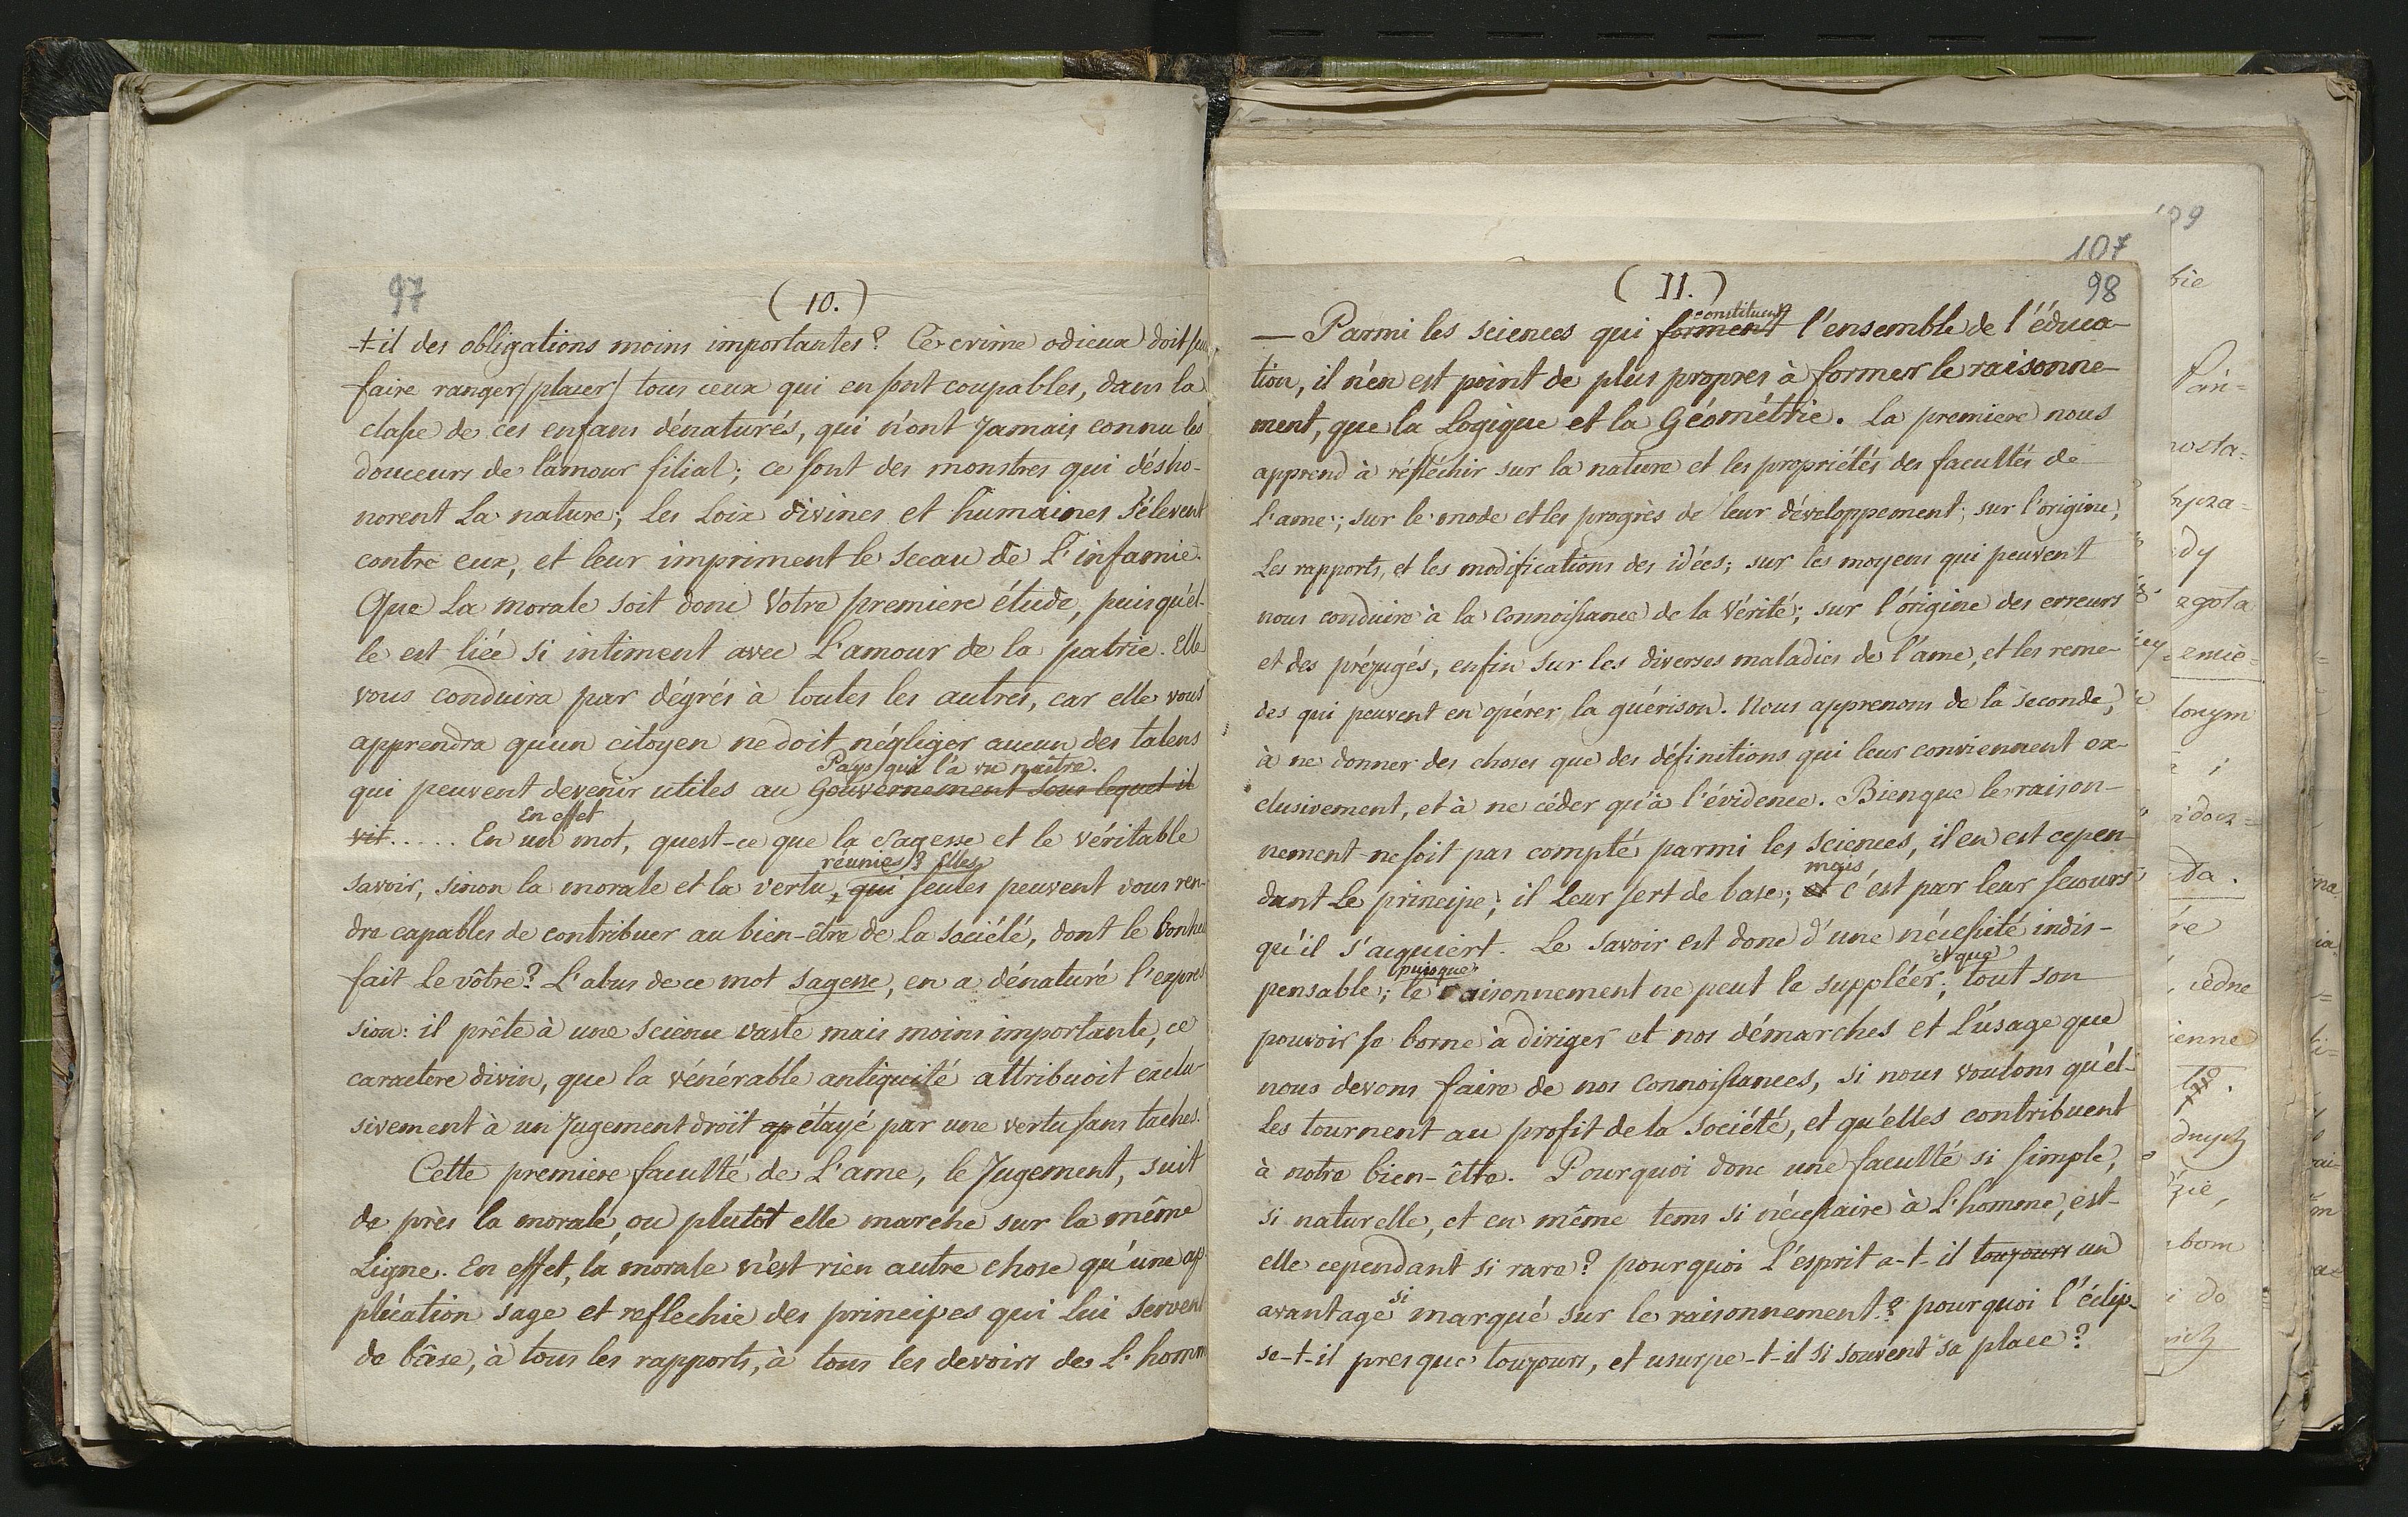 97
(10.)
-t-il des obligations moins importantes? Ce crime odieux doit
faire ranger/placer/ tous ceux qui en sont coupables, dans la
classe de ces enfans dénaturés, qui n'ont Jamais connu les
douceurs de l'amour filial; ce sont des monstres qui désho-
norent La nature; Les Loix divines et humaines s'élevent
contre eux, et leur impriment le sceau de L'infamie.
Que La morale soit donc Votre premiere étude, puisqu'el-
le est liée si intiment avec L'amour de la patrie. Elle
vous conduira par dégrés à toutes les autres, car elle vous
apprendra qu'un citoyen ne doit négliger aucun des talens
Pays qui l'a vu naitre.
qui peuvent devenir utiles au Gouvernement sous lequel il
En effet
vit..... En un mot, quest-ce que la sagesse et le véritable
réunies? Elles
savoir, sinon la morale et la vertu, qui seules peuvent vous ren-
dre capables de contribuer au bien-être de La société, dont le bonheu
fait Le vôtre? L'abus de ce mot sagesse, en a dénaturé l'expres
sion: il prête à une science vaste mais moins importante, ce
caractere divin, que la vénérable antiquité attribuoit exclu-
sivement à un Jugement droit ap étayé par une vertu sans taches.
Cette premiere faculté de L'ame, le Jugement, suit
de près la morale, ou plutôt elle marche sur la même
Ligne. En effet, la morale n'est rien autre chose qu'une ap-
plication sage et reflechie des principes qui Lui servent
de bâse, à tous les rapports, à tous les devoirs de L'homm
109
107
98
(11.)
constituent
— Parmi les sciences qui forment l'ensemble de l'éduca-
tion, il n'en est point de plus propres à former le raisonne-
ment, que la Logique et la Géométrie. La premiere nous
apprend à réfléchir sur la nature et les propriétés des facultés de
L'ame; sur le mode et les progrès de leur développement; sur l'origine,
Les rapports, et les modifications des idées; sur les moyens qui peuvent
nous conduire à la connoissance de la Vérité; sur l'origine des erreurs
et des préjugés, enfin sur les diverses maladies de l'ame, et les reme-
des qui peuvent en opérer la guérison. Nous apprenons de la seconde,
à ne donner des choses que des définitions qui leur conviennent ex-
clusivement, et à ne céder qu'à l'évidence. Bien que le raison-
nement ne soit pas compté parmi les sciences, il en est cepen-
mais
dant Le principe; il Leur sert de base; et c'est par leur secours
qu'il s'acquiert. Le savoir est donc d'une nécessité indis-
puisque et que
pensable; le raisonnement ne peut le suppléer; tout son
pouvoir se borne à diriger et nos démarches et L'usage que
nous devons faire de nos connoissances, si nous voulons qu'el-
Les tournent au profit de la Société, et qu'elles contribuent
à notre bien-être. Pourquoi donc une faculté si simple,
si naturelle, et en même tems si nécessaire à L'homme, est-
elle cependant si rare? pourquoi L'esprit a-t-il toujours un
si
avantage marqué sur le raisonnement? pourquoi l'éclip-
se-t-il presque toujours, et usurpe-t-il si souvent sa place?